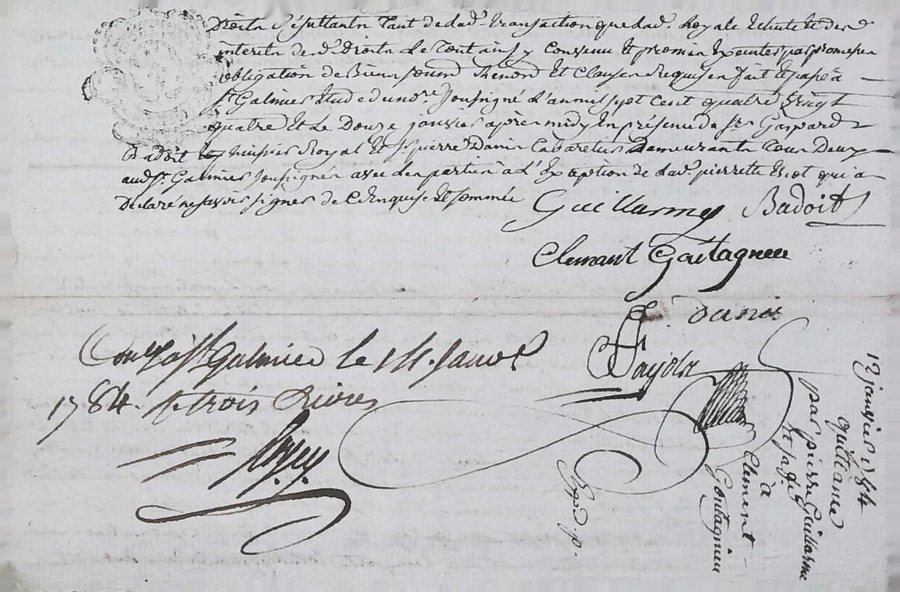 Droits Resultants tant de lad.e transaction que de lad.
de tout ainsy convenu et promis
obligation de Biens soumis Renon. et Clauses Requises fait et passé a
St Galmier Etude du no.re soussigné L'an mil sept cent quatre vingt
quatre et Le Douze janvier après midy En présence de Sr Gaspard
Badoit huissier Royal et Sr pierre Danir Cabaretier Demeurants tous Deux
aud. St Galmier soussignés avec les parties à L'Exception de lad. pierrette qui a
Declaré ne savoir signer de ce Enquise et sommée
Guillarme Badoit
Clemant Goutagneu
danir
Fayolle
Con.lé à St Galmier le janvr
1784. R trois livres
Exped. p.
12 janvier 1784
quittance
par pierre Guillarme
et sa fe
à
Clement
Goutagnieu